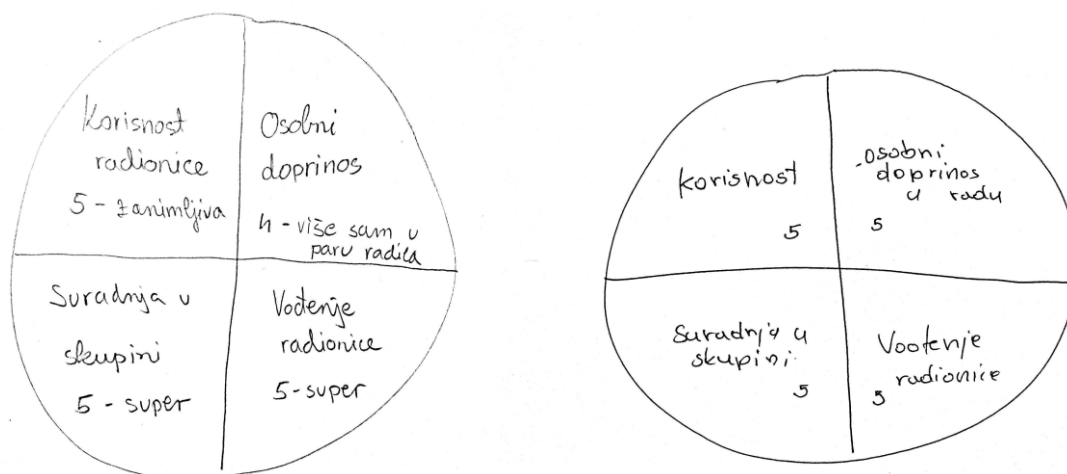 Korisnost
radionice
5 - zanimljiva
Osobni
doprinos
4 - više sam u
paru radila
Suradnja u
skupini
5 - super
Vođenje
radionice
5 - super
korisnost
5
osobni
doprinos
u radu
5
Suradnja u
skupini
5
Vođenje
radionice
5